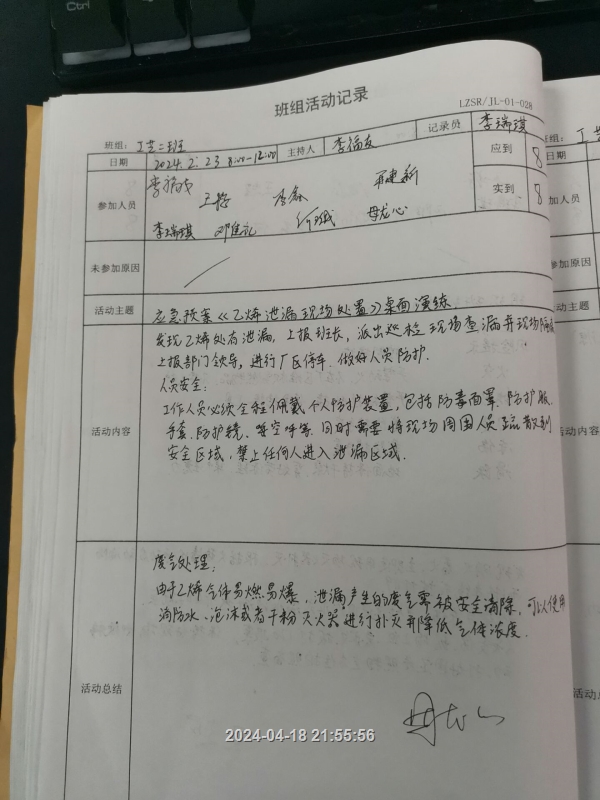 Ctrl
班组活动记录
LZSR/JL-01-028
班组: 工艺二班
日期 2024.2.23 8:00-12:00 主持人 李福友 记录员 李瑞琪 应到 8
参加人员
实到 8
李瑞琪
未参加原因
活动主题 应急预案《乙烯泄漏现场处置》桌面演练
活动内容
发现乙烯处有泄漏,上报班长,派出巡检现场查漏并现场
上报部门领导,进行厂区停车.做好人员防护.
人员安全:
工作人员必须全程佩戴个人防护装置,包括防毒面罩.防护服.
手套.防护镜.等空呼等.同时需要将现场周围人员疏散到
安全区域,禁止任何人进入泄漏区域.
活动总结
废气处理:
由于乙烯气体易燃易爆,泄漏产生的废气需被安全清除,可以使用
消防水、泡沫或者干粉灭火器进行扑灭并降低气体浓度.
2024-04-18 21:55:56
工艺
日期
参加人员
未参加原因
活动主题
活动内容
活动总结